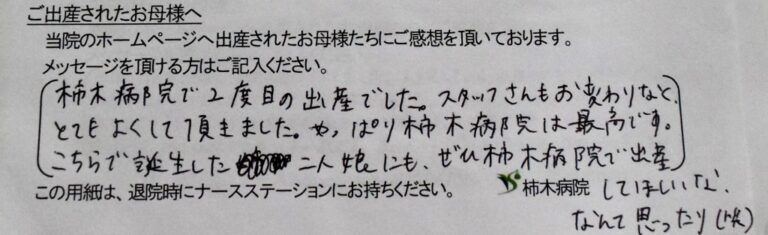 ご出産されたお母様へ
当院のホームページへ出産されたお母様たちにご感想を頂いております。
メッセージを頂ける方はご記入ください。
柿木病院で2度目の出産でした。スタッフさんもお変わりなく、
とてもよくして頂きました。やっぱり柿木病院は最高です。
こちらで誕生した 二人娘にも、ぜひ柿木病院で出産
この用紙は、退院時にナースステーションにお持ちください。 柿木病院 してほしいな、
なんて思ったり(笑)